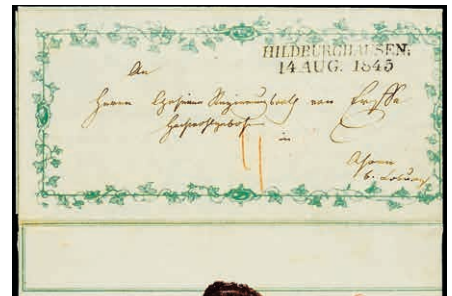 HILDBURGHAUSEN.
14 AUG. 1845
An
Herrn Geheimen Regierungsrath von
in
b. Coburg